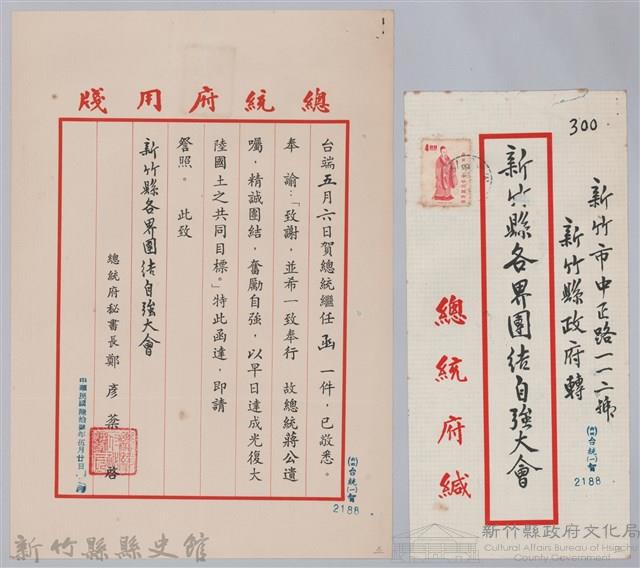 總統府用牋
台端五月六日賀總統繼任函一件，已敬悉。
奉　諭：「致謝，並希一致奉行　故總統蔣公遺
囑，精誠團結，奮勵自強，以早日達成光復大
陸國土之共同目標。」特此函達，即請
詧照。　此致
新竹縣各界團结自強大會
總統府秘書長鄭彥棻　啓
中華民國陸拾肆年伍月廿日
台統(一)智
2188
300
新竹市中正路一一二號
新竹縣政府轉
新竹縣各界團结自強大會
總統府緘
台統(一)智
2188
新竹縣縣史館
新竹縣政府文化局
Cultural Affairs Bureau of Hsinchu
County Government